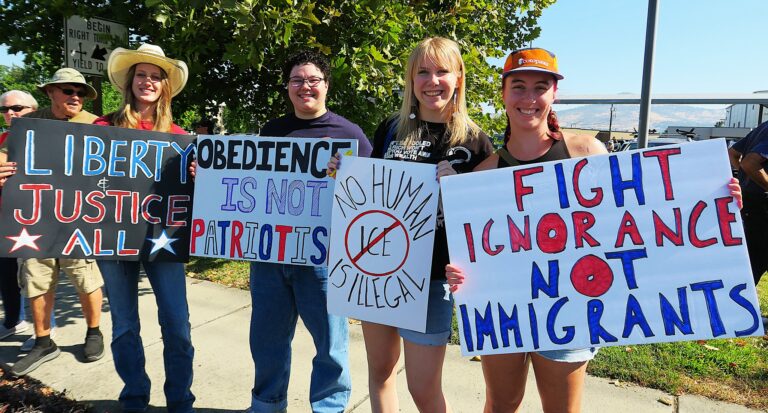 BEGIN
RIGHT TURN
YIELD TO
LIBERTY
&
JUSTICE
ALL
OBEDIENCE
IS NOT
PATRIOTIS
NO HUMAN
ICE
IS ILLEGAL
FIGHT
IGNORANCE
NOT
IMMIGRANTS